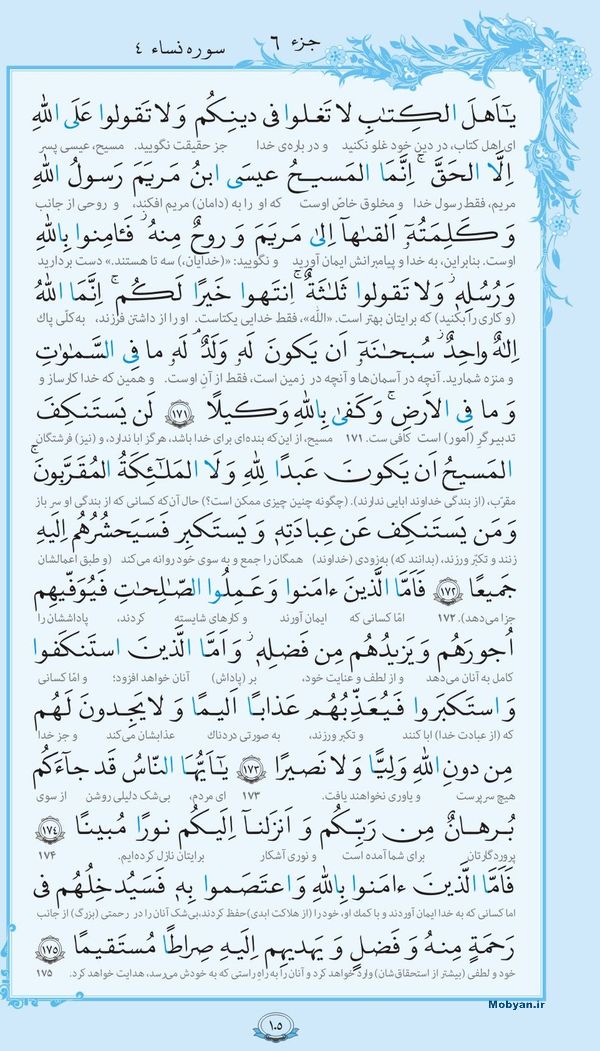 جزء ٦
سوره نساء ٤
يٰٓاَهلَ الكِتٰبِ لا تَغلوا فى دينِكُم وَ لا تَقولوا عَلَى اللهِ
ای اهل کتاب، در دین خود غلو نکنید و در باره‌ی خدا جز حقیقت نگویید. مسیح، عیسی پسر
اِلَّا الحَقَّ ۚ اِنَّمَا المَسيحُ عيسَى ابنُ مَريَمَ رَسولُ اللهِ
مریم، فقط رسول خدا و مخلوق خاصّ اوست که او را به (دامان) مریم افکند، و روحی از جانب
وَ كَلِمَتُهٗٓ اَلقىٰهآ اِلىٰ مَريَمَ وَ روحٌ مِنهُ ۖ فَـٔامِنوا بِاللهِ
اوست. بنابراین، به خدا و پیامبرانش ایمان آورید و نگویید: «(خدایان،) سه تا هستند.» دست بردارید
وَ رُسُلِهٖ ۖ وَ لا تَقولوا ثَلٰثَةٌ ۚ اِنتَهوا خَيرًا لَكُم ۚ اِنَّمَا اللهُ
(و کاری را بکنید) که برایتان بهتر است. «الله»، فقط خدایی یکتاست. او را از داشتن فرزند، به‌کلّی پاک
اِلٰهٌ واحِدٌ ۖ سُبحانَهٗٓ اَن يَكونَ لَهٗ وَلَدٌ ۘ لَهٗ ما فِى السَّمٰوٰتِ
و منزه شمارید. آنچه در آسمان‌ها و آنچه در زمین است، فقط از آنِ اوست. و همین که خدا کارساز و
وَ ما فِى الاَرضِ ۗ وَ كَفىٰ بِاللهِ وَكيلًا ١٧١ لَن يَستَنكِفَ
تدبیرگرِ (امور) است کافی ست. ١٧١ مسیح، از این‌که بنده‌ای برای خدا باشد، هرگز ابا ندارد، و (نیز) فرشتگان
المَسيحُ اَن يَكونَ عَبدًا لِلّٰهِ وَ لَا المَلٰٓئِكَةُ المُقَرَّبونَ ۚ
مقرّب، (از بندگی خداوند ابایی ندارند). (چگونه چنین چیزی ممکن است؟) حال آن‌که کسانی که از بندگی او سر باز
وَ مَن يَستَنكِف عَن عِبادَتِهٖ وَ يَستَكبِر فَسَيَحشُرُهُم اِلَيهِ
زنند و تکبّر ورزند، (بدانند که) به‌زودی (خداوند) همگان را جمع و به سوی خود روانه می‌کند (و طبق اعمالشان
جَميعًا ١٧٢ فَاَمَّا الَّذينَ ءامَنوا وَ عَمِلُوا الصّٰلِحٰتِ فَيُوَفّيهِم
جزا می‌دهد). ١٧٢ امّا کسانی که ایمان آورند و کارهای شایسته کردند، پاداششان را
اُجورَهُم وَ يَزيدُهُم مِن فَضلِهٖ ۖ وَ اَمَّا الَّذينَ استَنكَفوا
کامل به آنان می‌دهد و از لطف و عنایت خود، بر (پاداش) آنان خواهد افزود؛ و امّا کسانی
وَ استَكبَروا فَيُعَذِّبُهُم عَذابًا اَليمًا وَ لا يَجِدونَ لَهُم
که (از عبادت خدا) ابا کنند و تکبر ورزند، به صورتی دردناک عذابشان می‌کند و جز خدا
مِن دونِ اللهِ وَلِيًّا وَ لا نَصيرًا ١٧٣ يٰٓاَيُّهَا النّاسُ قَد جآءَكُم
هیچ سرپرست و یاوری نخواهند یافت. ١٧٣ ای مردم، بی‌شک دلیلی روشن از سوی
بُرهانٌ مِن رَبِّكُم وَ اَنزَلنآ اِلَيكُم نورًا مُبينًا ١٧٤
پروردگارتان برای شما آمده است و نوری آشکار برایتان نازل کرده‌ایم. ١٧٤
فَاَمَّا الَّذينَ ءامَنوا بِاللهِ وَ اعتَصَموا بِهٖ فَسَيُدخِلُهُم فى
اما کسانی که به خدا ایمان آوردند و با کمک او، خود را (از هلاکت ابدی) حفظ کردند، بی‌شک آنان را در رحمتی (بزرگ) از جانب
رَحمَةٍ مِنهُ وَ فَضلٍ وَ يَهديهِم اِلَيهِ صِراطًا مُستَقيمًا ١٧٥
خود و لطفی (بیشتر از استحقاق‌شان) وارد خواهد کرد و آنان را به راهِ راستی که به خودش می‌رسد، هدایت خواهد کرد. ١٧٥
Mobyan.ir
١٠٥